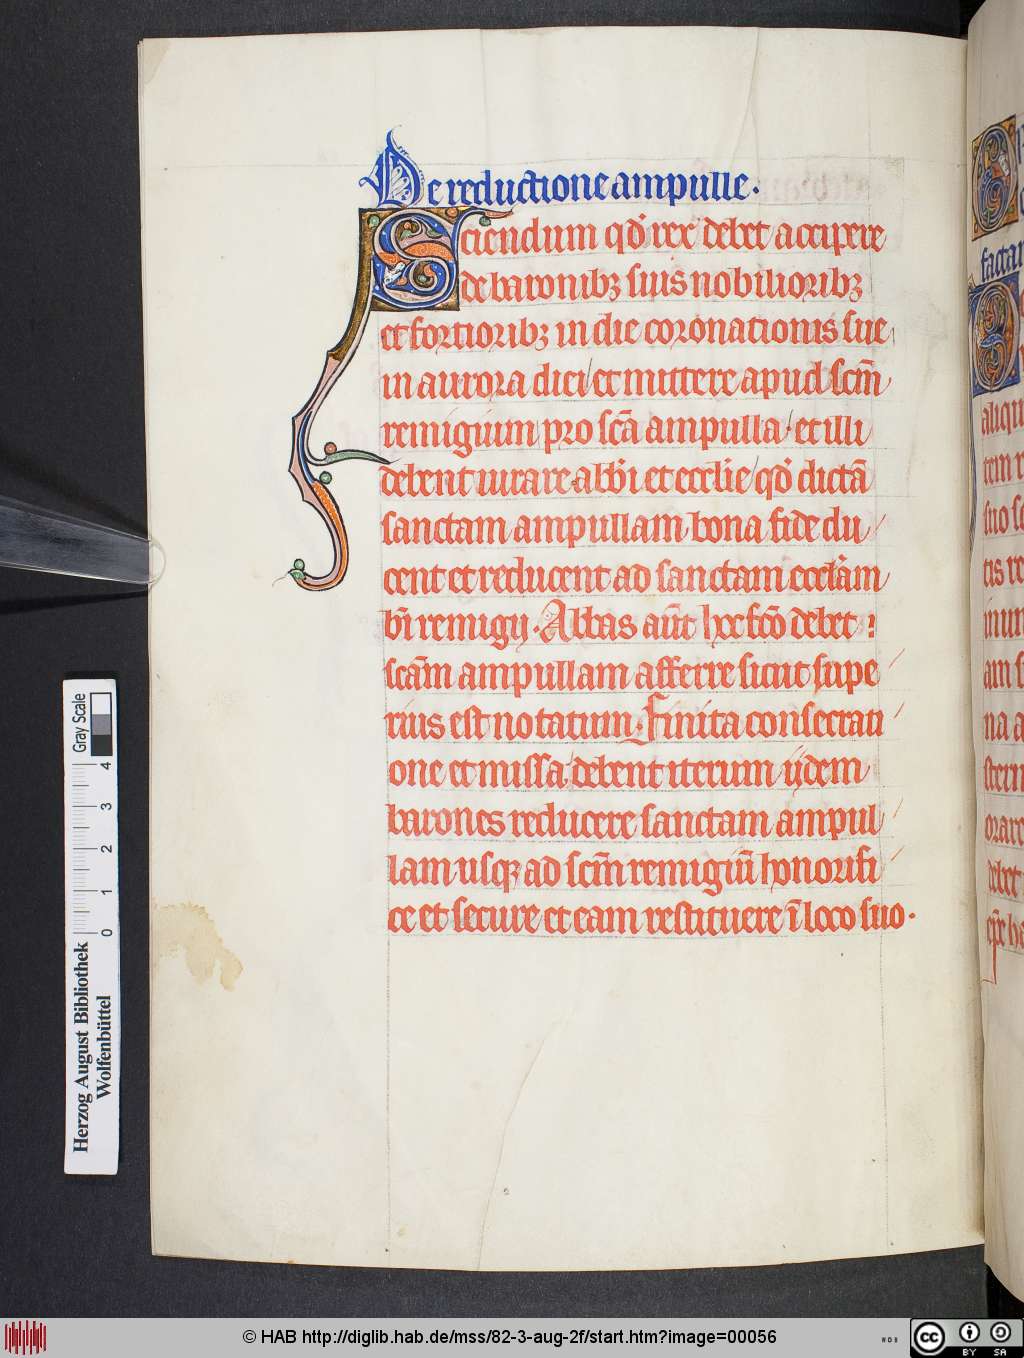 De reductione ampulle.
Sciendum qđ rex debet accipere
de baronibꝫ suis nobilioribꝫ
et fortioribꝫ in die coronationis sue
in aurora diei et mittere apud scm̄
remigium pro scā ampulla et illi
debent iurare abb̄i et eccl̄ie qđ dictā
sanctam ampullam bona fide du
cent et reducent ad sanctam eccl̄am
b̄i remigij. Abbas aūt hoc fc̄o debet
scām ampullam afferre sicut supe
rius est notatum. Finita consecrati
one et missa debent iterum ijdem
barones reducere sanctam ampul
lam usqꝫ ad scm̄ remigiū honorifi
ce et secure et eam restituere ī loco suo.
factar
aliqu
tem r
suo s
tis re
inun
am s
na a
stern
orare
debet
Gray Scale
0 1 2 3 4
Herzog August Bibliothek
Wolfenbüttel
© HAB http://diglib.hab.de/mss/82-3-aug-2f/start.htm?image=00056
WDB
cc BY SA